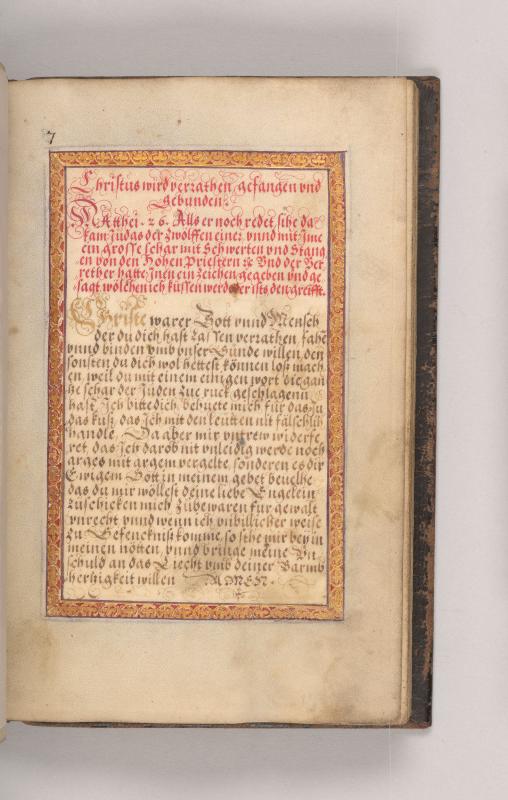 7
Christus wird verrathen, gefangen vnd
gebunden.
Matthei. 26. Alls er noch redet, sihe da
kam Judas der Zwölffen einer, vnnd mit Jme
ein grosse schar mit Schwerten vnd Stang
en von den Hohen Priestern &c Vnd der Ver
rether hatte Jnen ein zeichen gegeben vnd ge
sagt wölchen ich küssen werd der ists den greifft.
Christe warer Gott vnnd Mensch
der du dich hast lassen verrathen, fahē
vnnd binden vmb vnser Sünde willen, den
sonsten du dich wol hettest können loß mach
en, weil du mit einem einigen wort die gan
tze schar der Juden zue ruck geschlagenn
hast, Jch bitte dich, behuete mich für das Ju
das kuß, das Jch mit den leutten nit fälschlich
handle. Da aber mir vntrew widerfe
ret, das Jch darob nit vnleidig werde noch
arges mit argem vergelte, sonderen es dir
Ewigem Gott in meinem gebet beuelhe
das du mir wöllest deine liebe Engelein
zuschicken mich zübewaren für gewalt
vnrecht vnnd wenn ich vnbillicher weise
zu Gefencknis komme, so sthe mir bey in
meinen nötten, vnnd bringe meine Vn
schuld an das Liecht vmb deiner Barmb
hertzigkeit willen AMEN.